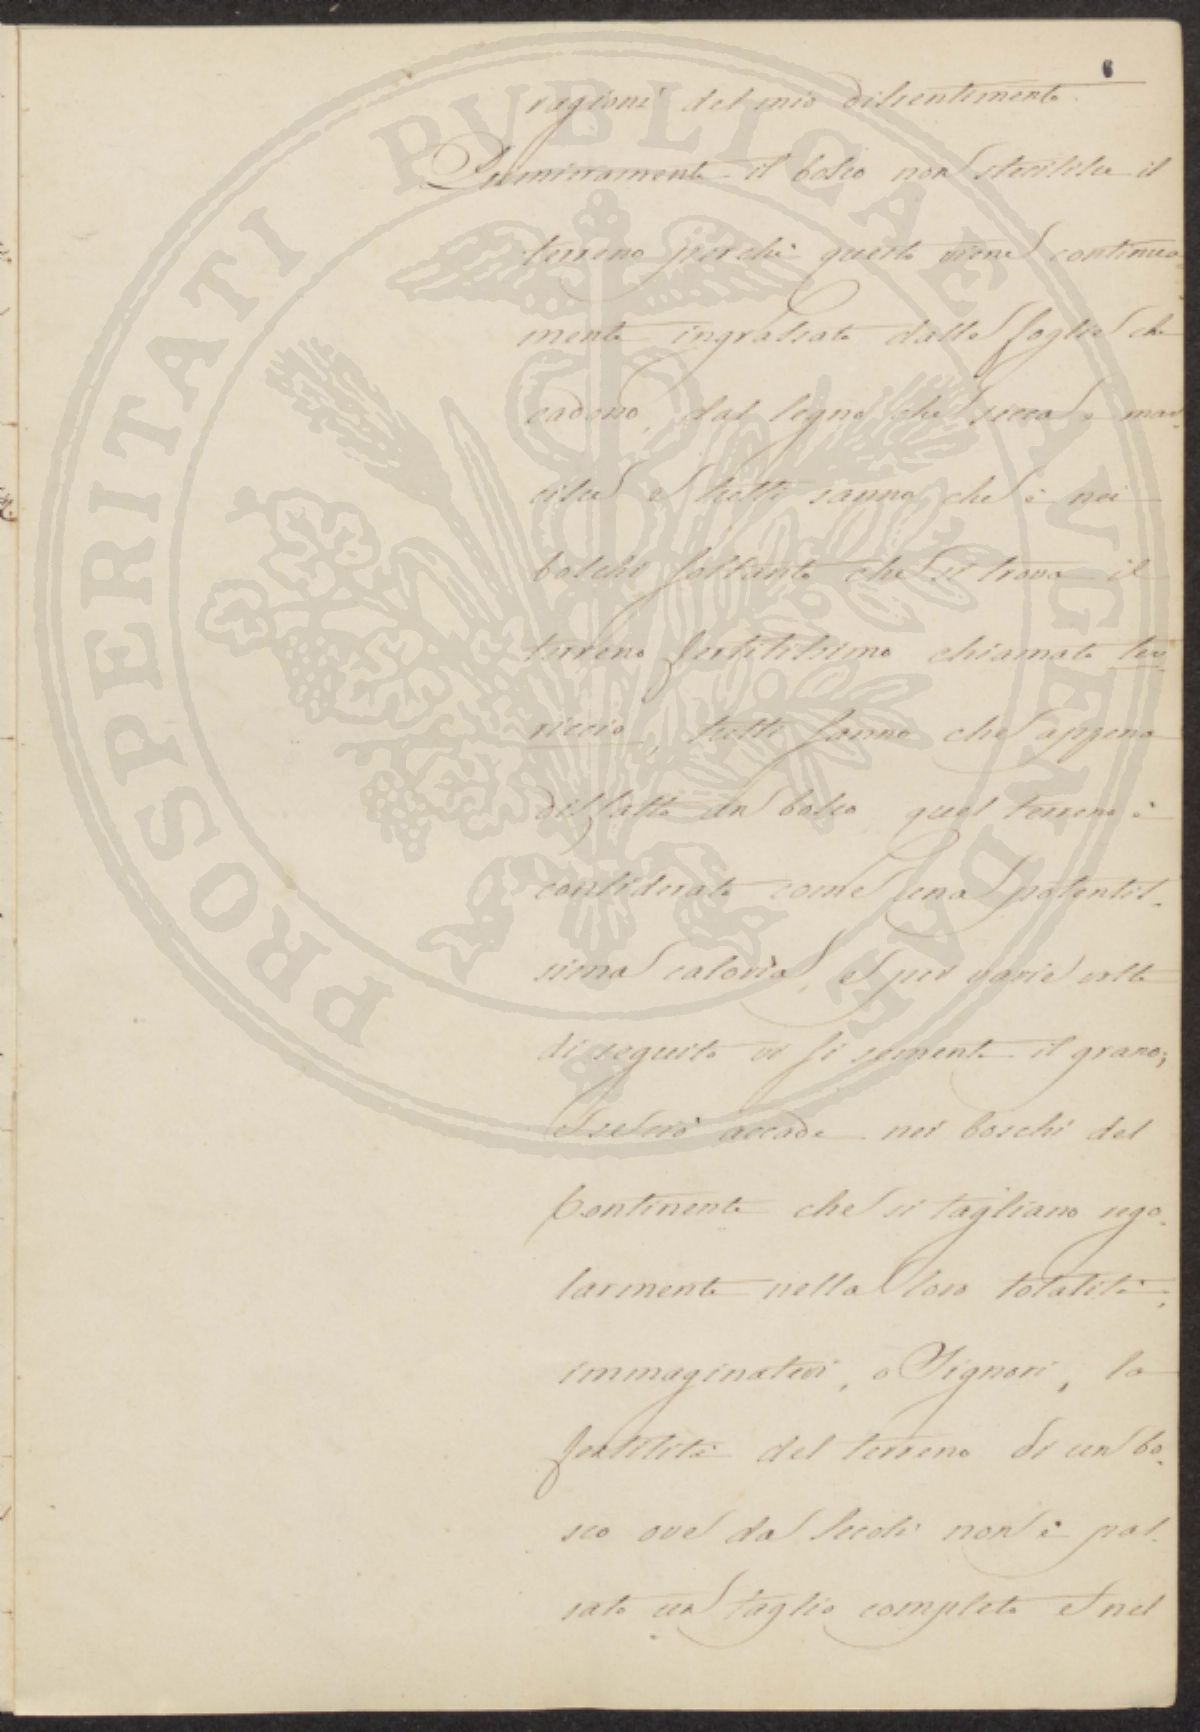 6
ragioni del mio dissentimento.
Primieramente il bosco non sterilisce il
terreno perchè questo viene continua
mente ingrassato dalle foglie che
cadono, dal legno che secca e mar-
cisce e tutti sanno che è nei
boschi soltanto che si trova il
terreno fertilissimo chiamato ter
riccio, tutti sanno che appena
disfatto un bosco quel terreno è
considerato come una potentis-
sima caloria, e per varie volte
di seguito vi si sementa il grano;
E se ciò accade nei boschi del
Continente che si tagliano rego-
larmente nella loro totalità,
immaginatevi, o Signori, la
fertilità del terreno di un bo-
sco ove da secoli non è pas-
sato un taglio completo e nel
PROSPERITATI PVBLICAE AVGENDAE